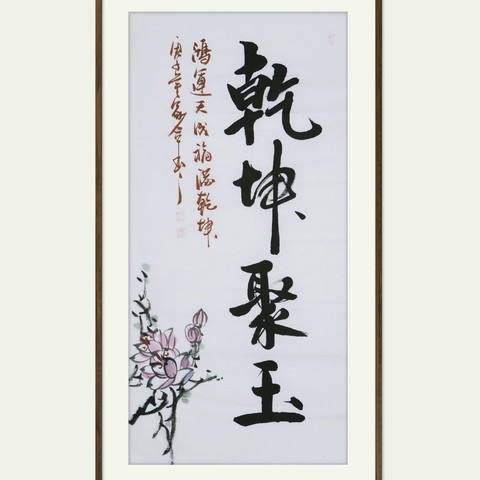 乾坤聚玉
鸿運天成福满乾坤
庚子年